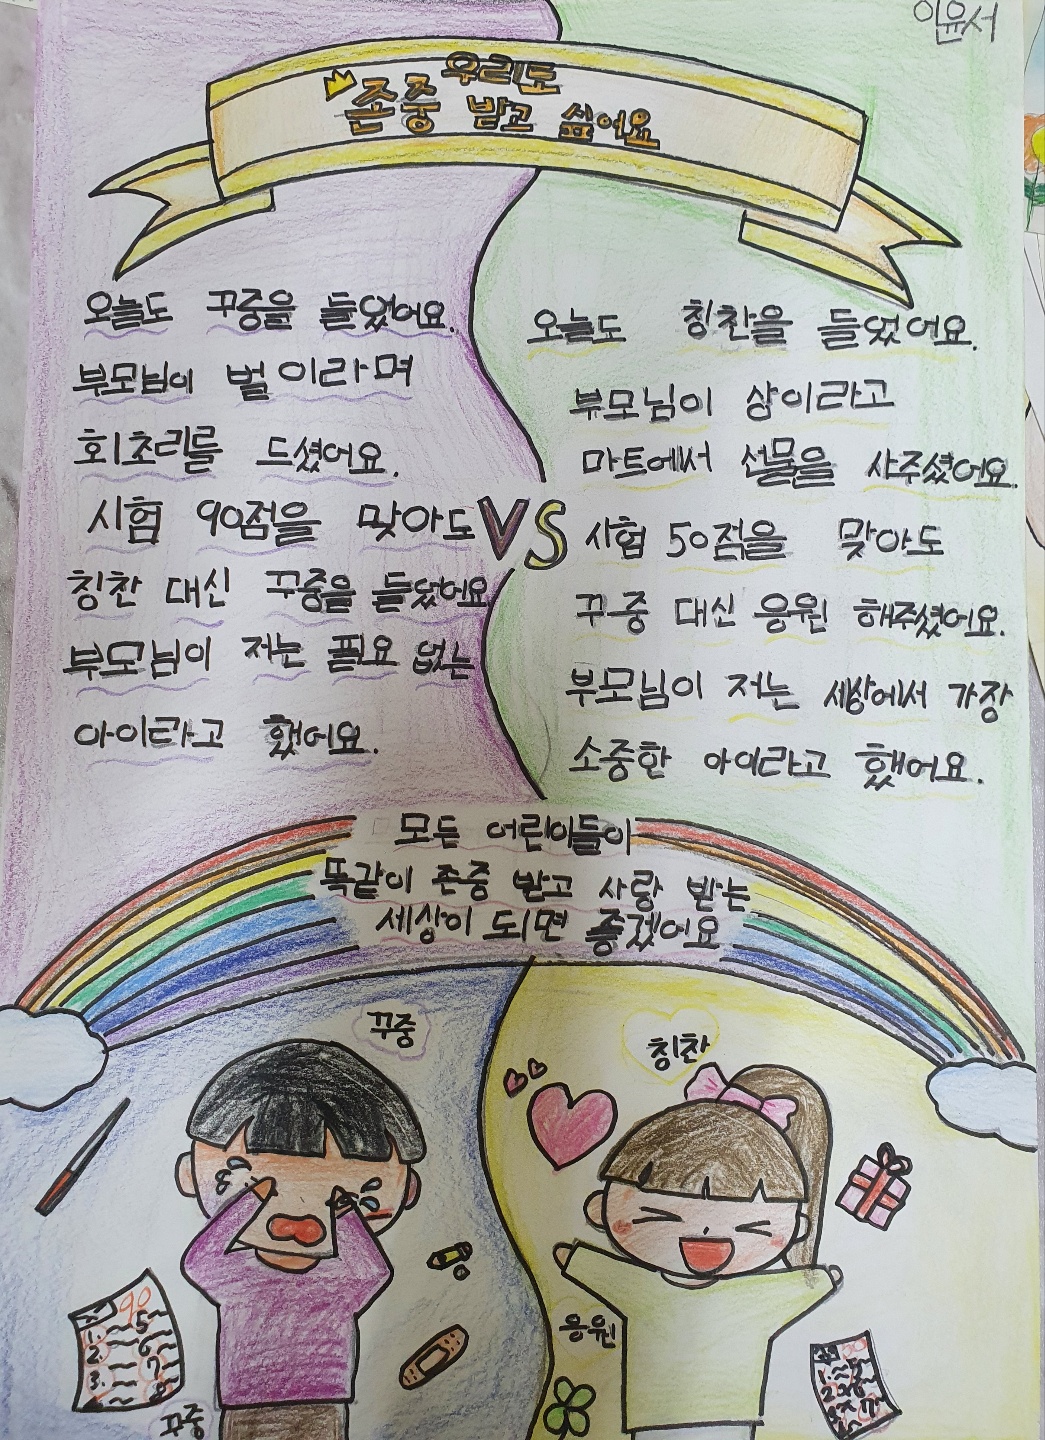 이윤서
우리도
존중 받고 싶어요
오늘도 꾸중을 들었어요.
부모님이 벌이라며
회초리를 드셨어요.
시험 90점을 맞아도
칭찬 대신 꾸중을 들었어요
부모님이 저는 필요 없는
아이라고 했어요.
VS
오늘도 칭찬을 들었어요.
부모님이 상이라고
마트에서 선물을 사주셨어요.
시험 50점을 맞아도
꾸중 대신 응원 해주셨어요.
부모님이 저는 세상에서 가장
소중한 아이라고 했어요.
모든 어린이들이
똑같이 존중 받고 사랑 받는
세상이 되면 좋겠어요
꾸중
칭찬
90
1. 5
2. 6
3. 7
8
꾸중
응원